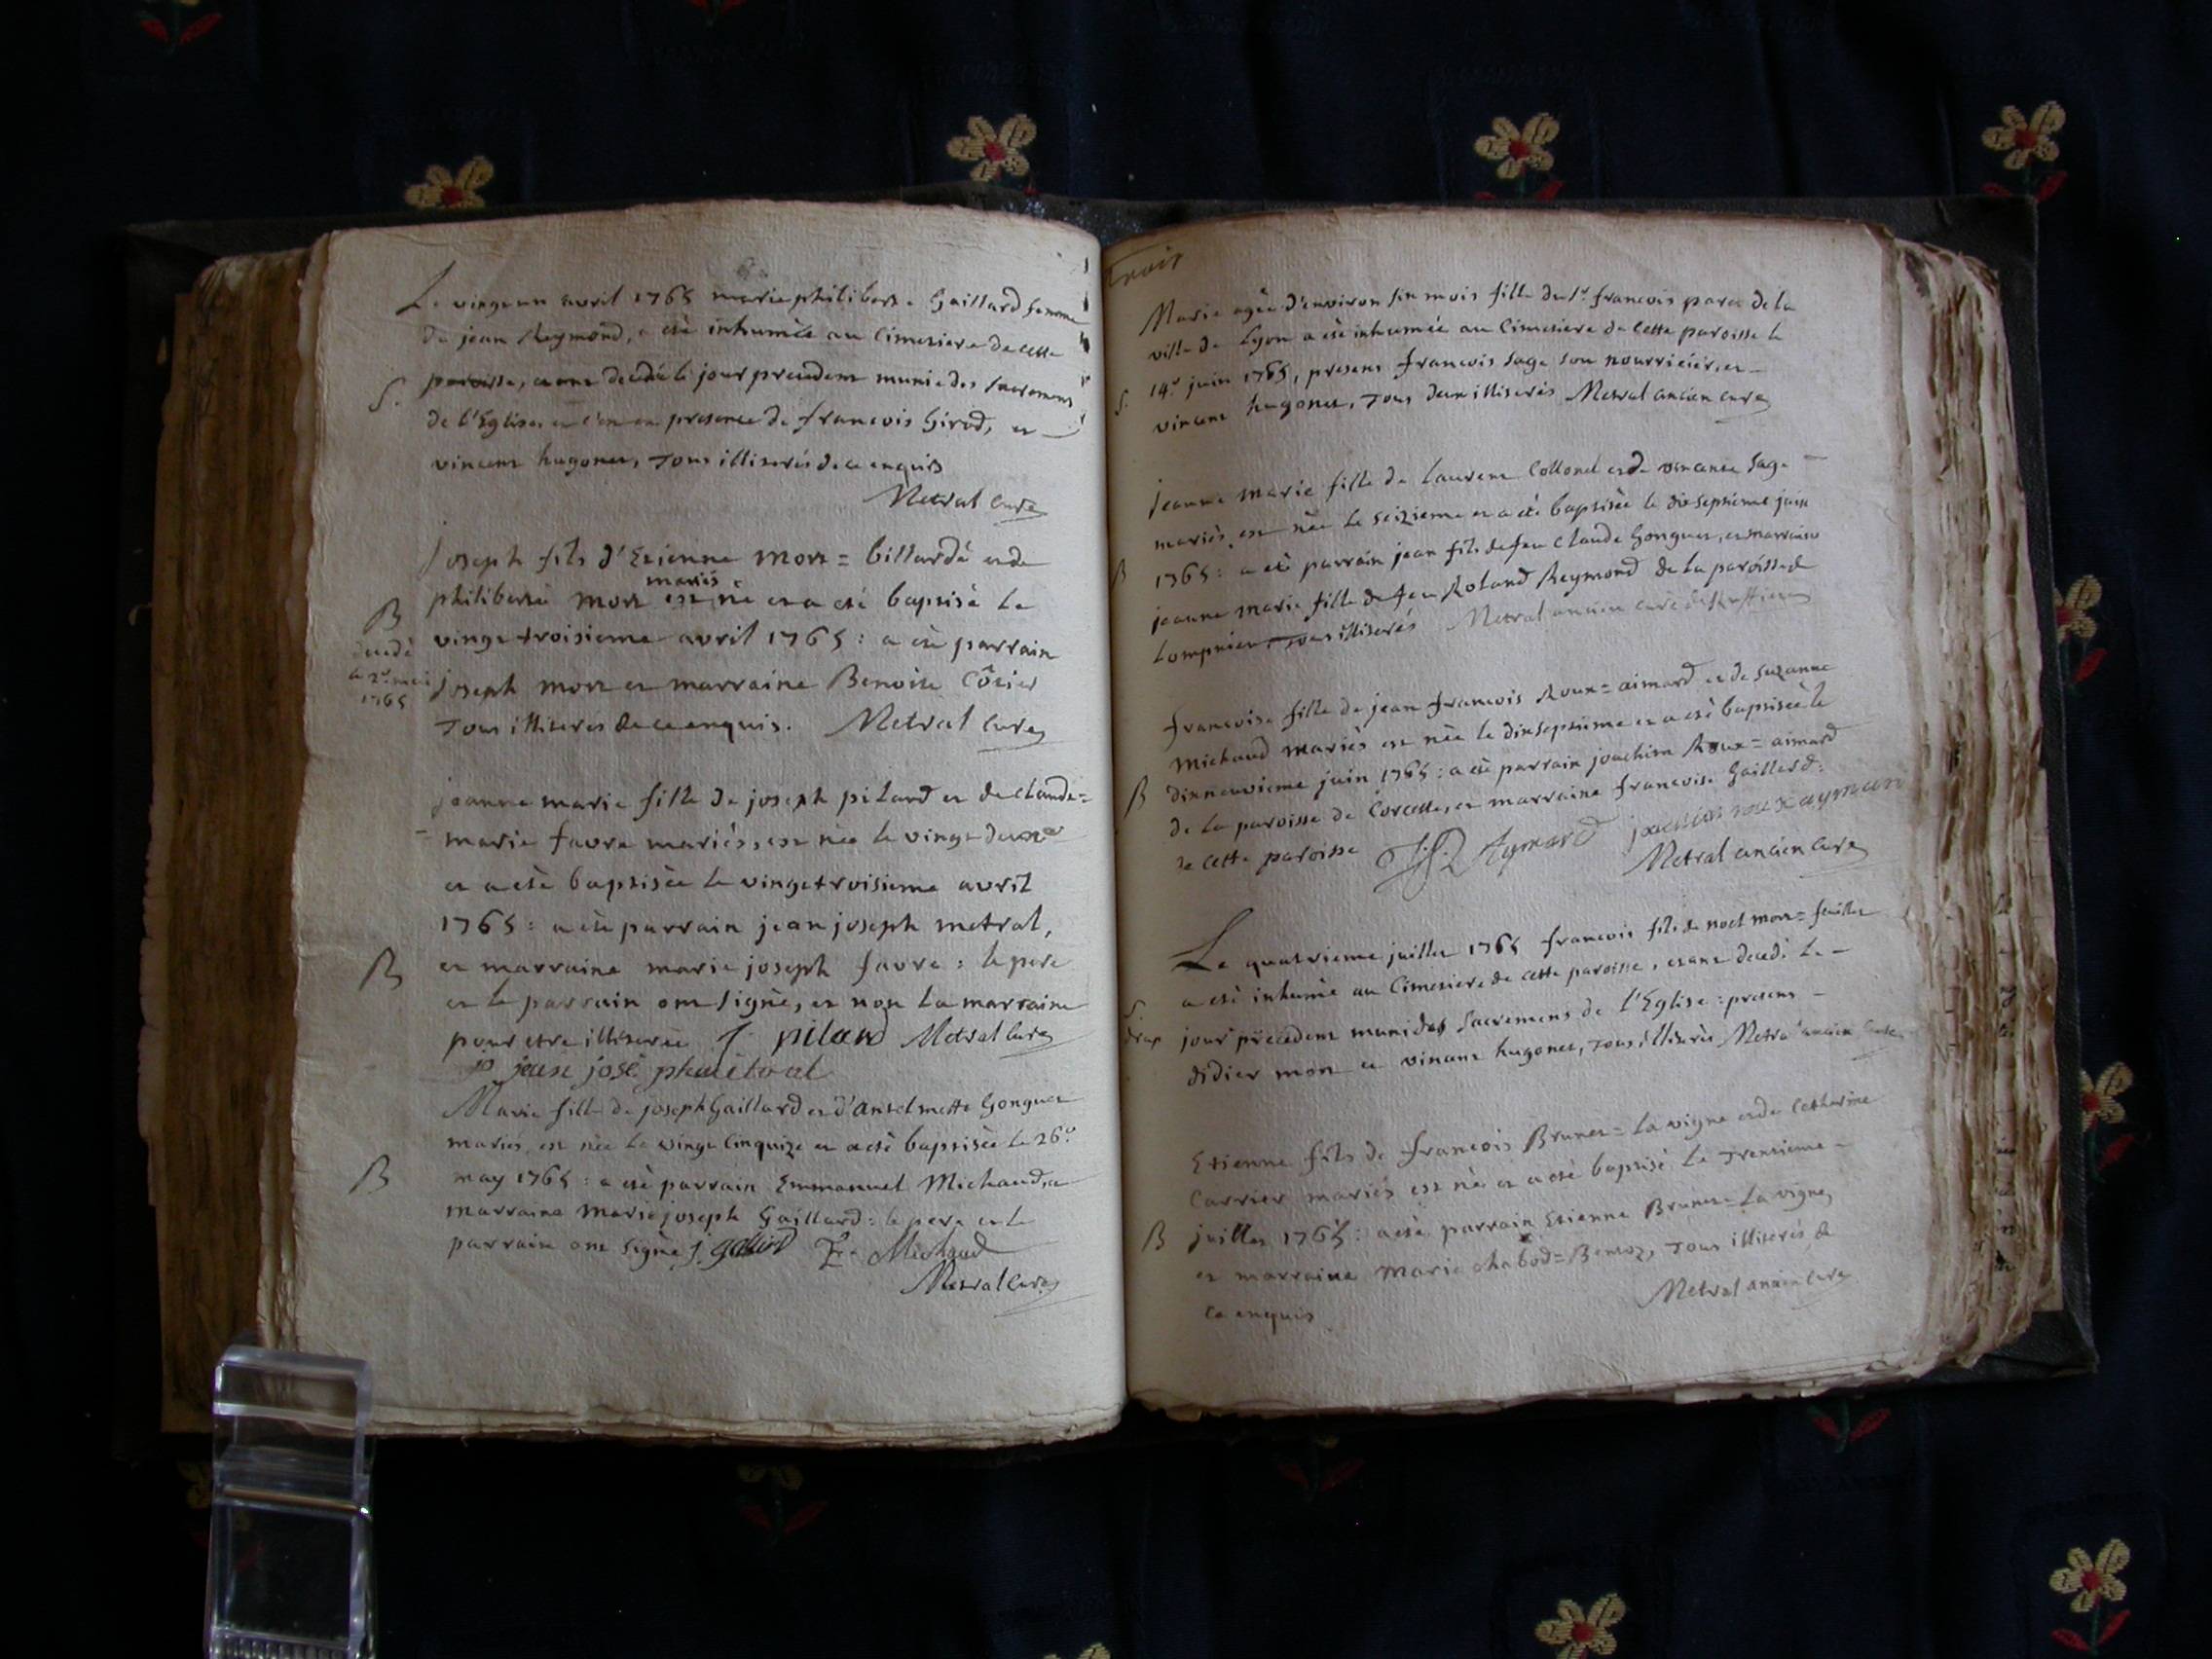 Le vingt un avril 1765 marie philiberte Gaillard femme
de jean Reymond, a eté inhumée au Cimetiere de cette
S. paroisse, etant decedé le jour precedent munie des Sacremens
de l'Eglise, et c'en en presence de francois Girod, et
vincent hugonet, Tous illiterés de ce enquis
Metral Curé
Joseph fils d'Etienne Mort = billardé et de
mariés
philiberte Mort est né et a eté baptisé Le
B
vingt troisieme avril 1765 : a eté parrain
decedé
le 2e mai
joseph mort et marraine Benoite
1765
Tous illiterés de ce enquis. Metral Curé
jeanne marie fille de joseph pilard et de claude =
= marie favre mariés, est née le vingt deux
et a eté baptisée le vingt troisieme avril
1765 : a eté parrain jean joseph metral,
B et marraine marie joseph favre : le pere
et le parrain ont signé, et non La marraine
pour etre illiterée J. pilard Metral Curé
jean josé
Marie fille de joseph Gaillard et d'Anselmette Gonguet
mariés, est née Le vingt Cinq et a eté baptisée le 26e
B may 1765 : a eté parrain Emmanuel Michaud, et
marraine Marie joseph Gaillard : le pere et le
parrain ont signé J. galliard E. Michaud
Metral Curé
Trois
Marie agée d'environ six mois fille du Sr. francois de la
ville de Lyon a eté inhumée au Cimetiere de Cette paroisse le
S. 14e juin 1765, presens francois Sage son nourricier, et
vincent hugonet, Tous deux illiterés Metral ancien curé
Jeanne Marie fille de Laurent Collond et de vincente Sage
mariés, est née Le seizieme et a eté baptisée le dix septieme juin
B 1765 : a eté parrain jean fils de feu Claude Gonguet, et marraine
jeanne marie fille de feu Roland Reymond de la paroisse de
Lompnieu Tous illiterés Metral ancien curé de Ruffieu
francoise fille de jean francois Roux = aimard et de Suzanne
Michaud mariés est née le dixseptieme et a eté baptisée le
B dixneuvieme juin 1765 : a eté parrain joachim Roux = aimard
de La paroisse de Corcelle, et marraine francoise Gaillard :
de cette paroisse Aymard joachim roux aymard
Metral ancien Curé
Le quatrieme juillet 1765 francois fils de noel mort = feuillet
a eté inhumé au Cimetiere de cette paroisse, etant decedé Le
S. jour precedent muni des Sacremens de l'Eglise : presens
drap
didier mort et vincent hugonet, Tous illiterés Metral ancien Curé
Etienne fils de francois Brunet = La vigne et de Catherine
Carrier mariés est né et a eté baptisé Le Trentieme
B juillet 1765 : a eté parrain Etienne Brunet = La vigne,
et marraine Marie chabod = Bemoz, Tous illiterés de
ce enquis Metral ancien curé